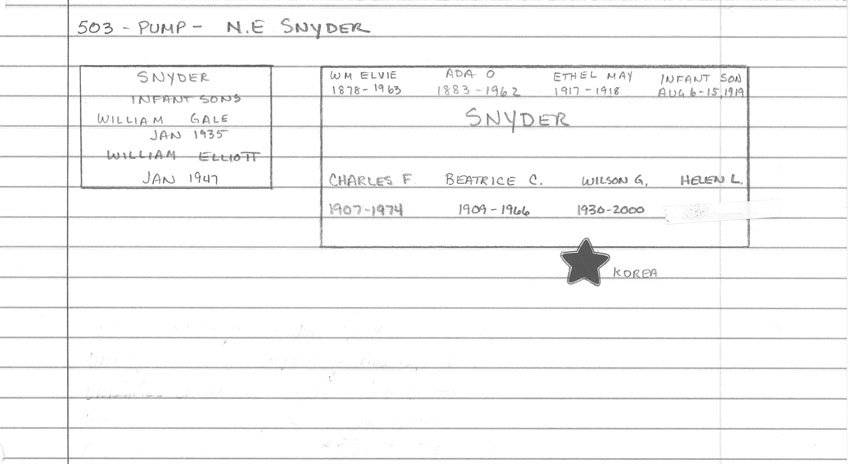 503 - PUMP - N.E SNYDER
SNYDER
INFANT SONS
WILLIAM GALE
JAN 1935
WILLIAM ELLIOTT
JAN 1947
WM ELVIE ADA O ETHEL MAY INFANT SON
1878-1963 1883-1962 1917-1918 AUG 6-15, 1919
SNYDER
CHARLES F BEATRICE C. WILSON G. HELEN L.
1907-1974 1909-1966 1930-2000
KOREA